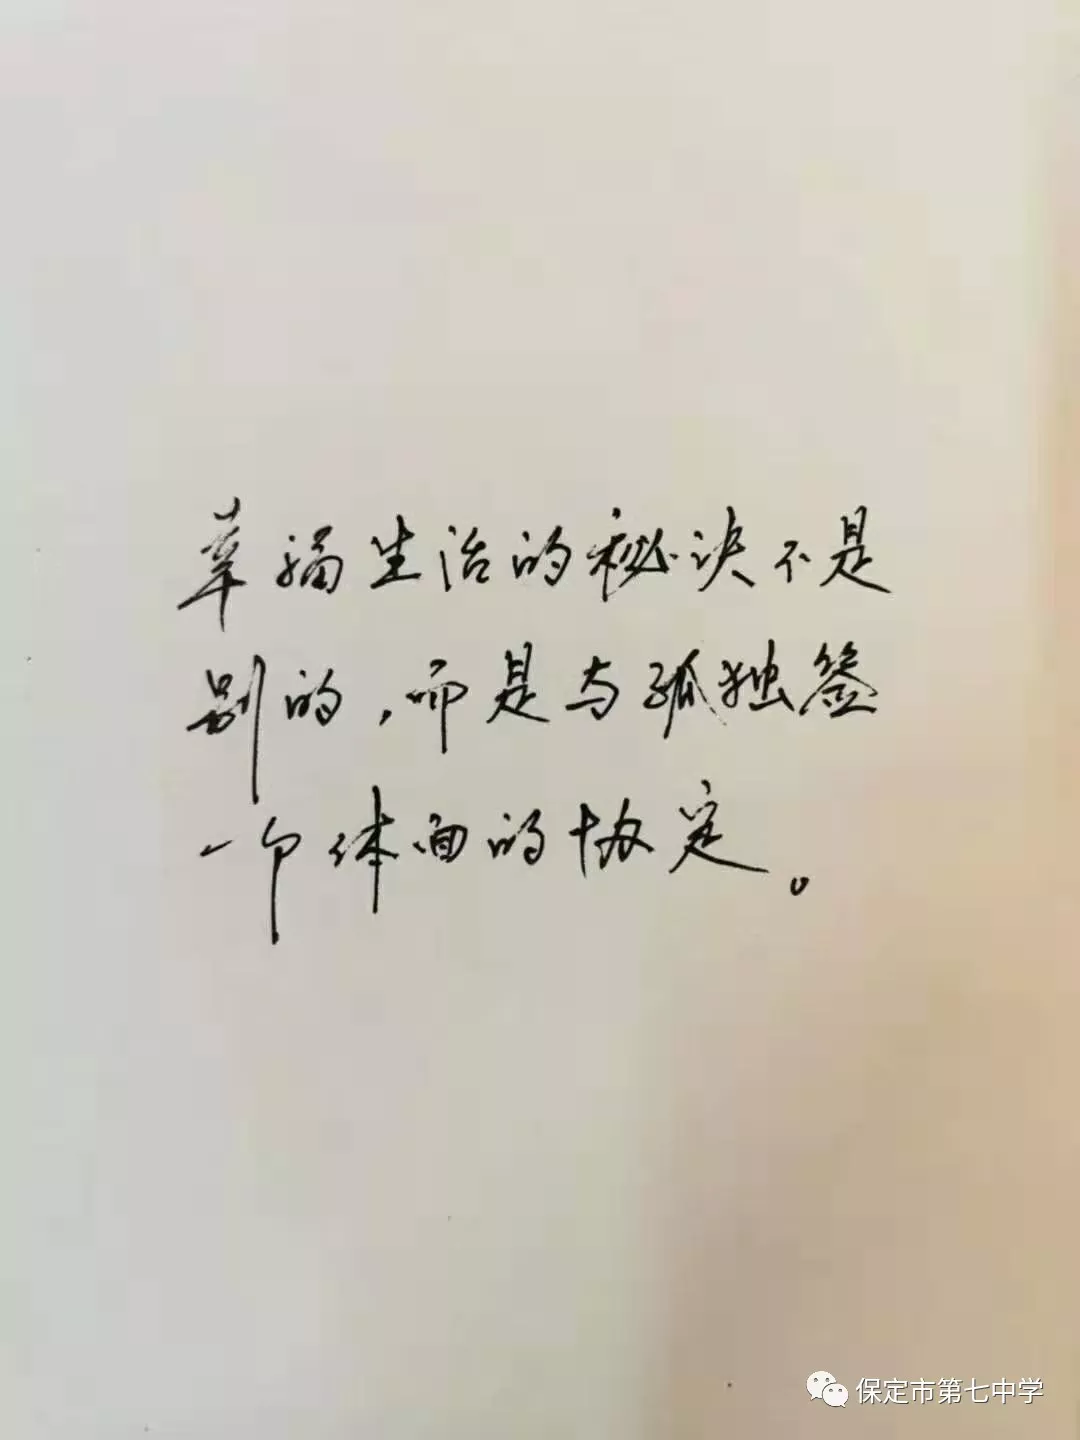 幸福生活的秘诀不是
别的，而是与孤独签
一个体面的协定。
保定市第七中学